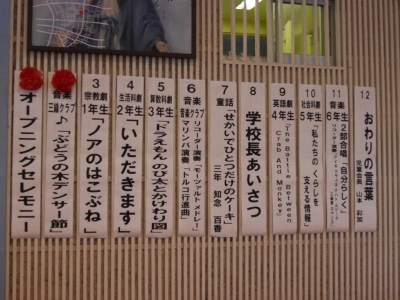 オープニングセレモニー
音楽
三線クラブ♪「ぶどうの木デンサー節」
3
宗教劇
1年生「ノアのはこぶね」
4
生活科劇
2年生「いただきます」
5
算数科劇
3年生「ドラえもんのひみつとかけわり図」
6
音楽
音楽クラブ
リコーダー演奏「モーツァルトメドレー」
マリンバ演奏「トルコ行進曲」
7
童話
「せかいでひとつだけのケーキ」
三年 知念 百香
8
学校長あいさつ
9
英語劇
4年生
"The Battle Between
Crab And Monkey"
10
社会科劇
5年生
「私たちのくらしを
支える情報」
11
音楽
6年生
2部合唱「自分らしく」
12
おわりの言葉
児童会長 山本 彩加